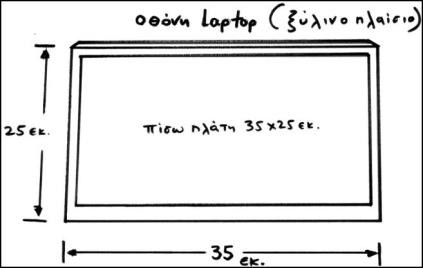 οθόνη Laptop (ξύλινο πλαίσιο)
25 εκ.
πίσω πλάτη 35x25 εκ.
35 εκ.